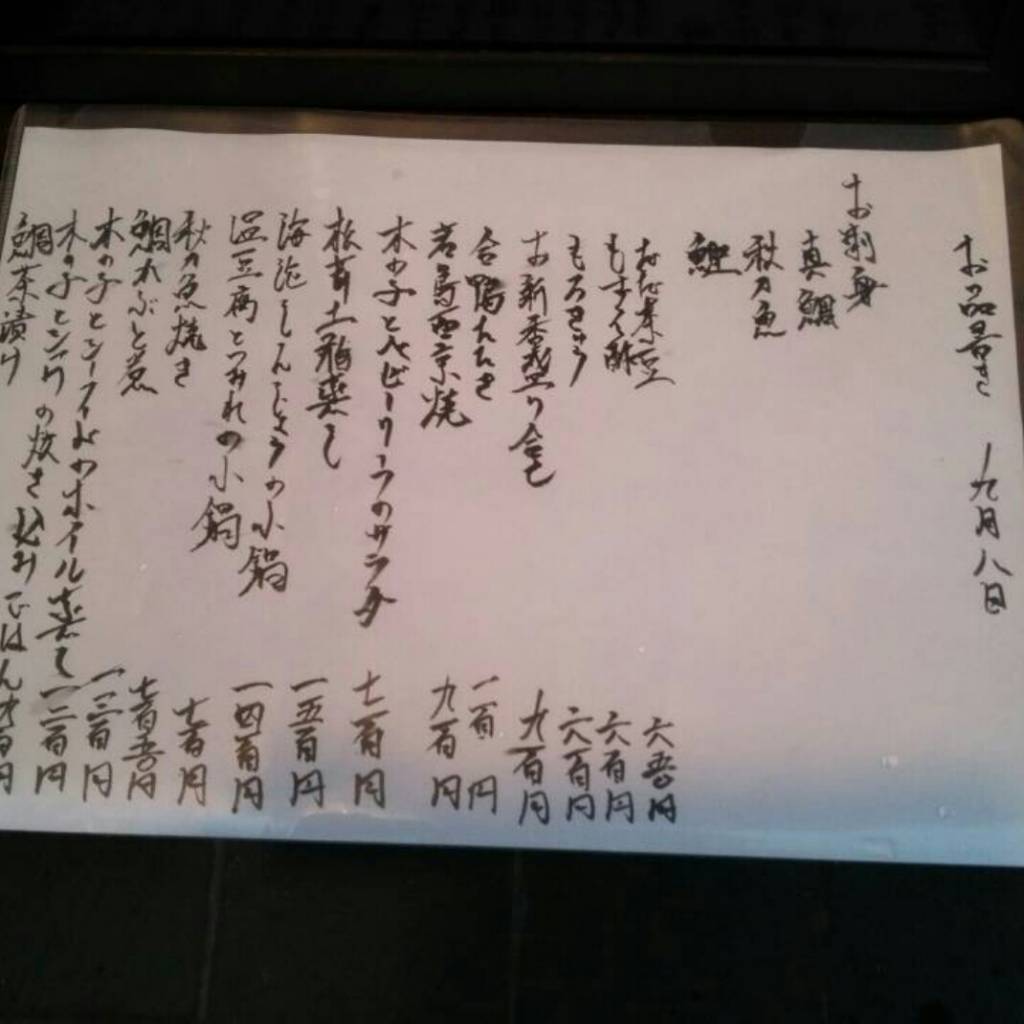 お品書き 九月八日
お刺身
真鯛
秋刀魚
鰹
だだ茶豆 六五〇円
もずく酢 六百円
もろきゅう 六百円
お新香盛り合せ 九百円
合鴨たたき 一百円
若鳥西京焼 九百円
木の子とベビーリーフのサラダ 七百円
松茸土瓶蒸し
海老しんじょうの小鍋 一五百円
湯豆腐とつみれの小鍋 一四百円
秋刀魚焼き 七百円
鯛かぶと煮 七百五〇円
木の子とシーフードのホイル蒸し 一二百円
木の子と の炊き込みごはん
鯛茶漬け